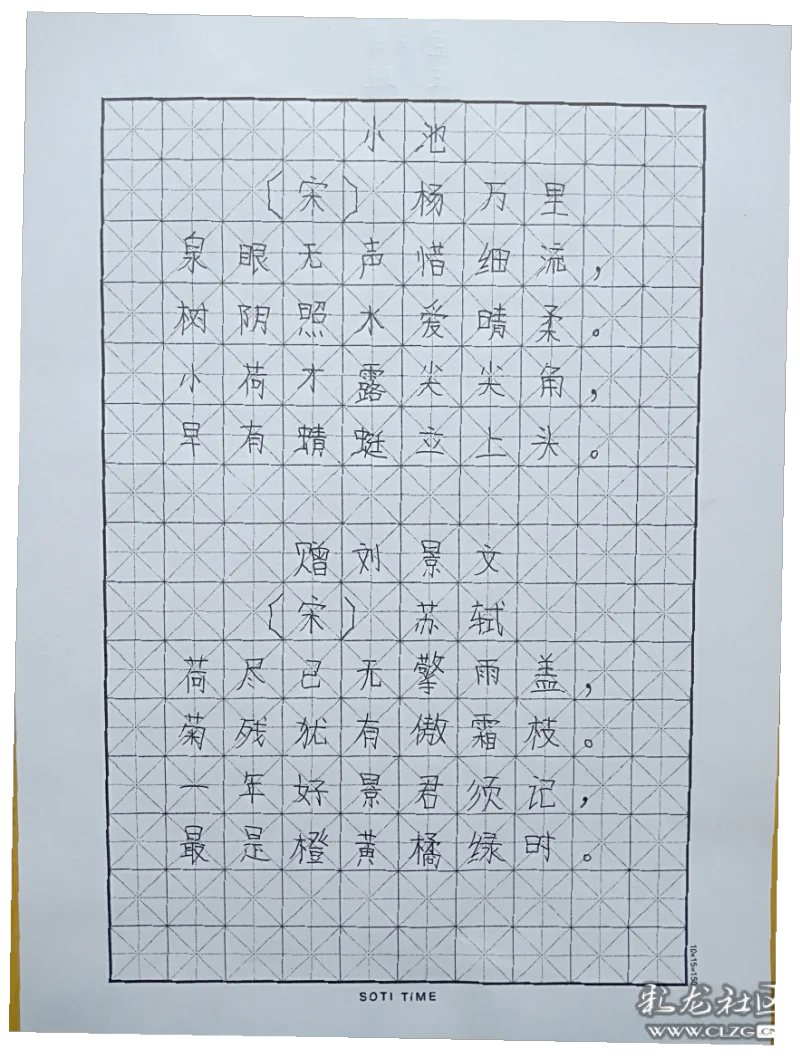 小池
〔宋〕 杨万里
泉眼无声惜细流，
树阴照水爱晴柔。
小荷才露尖尖角，
早有蜻蜓立上头。
赠刘景文
〔宋〕 苏轼
荷尽已无擎雨盖，
菊残犹有傲霜枝。
一年好景君须记，
最是橙黄橘绿时。
10x15=150
SOTI TiME
彩龙社区
www.CLZG.CN